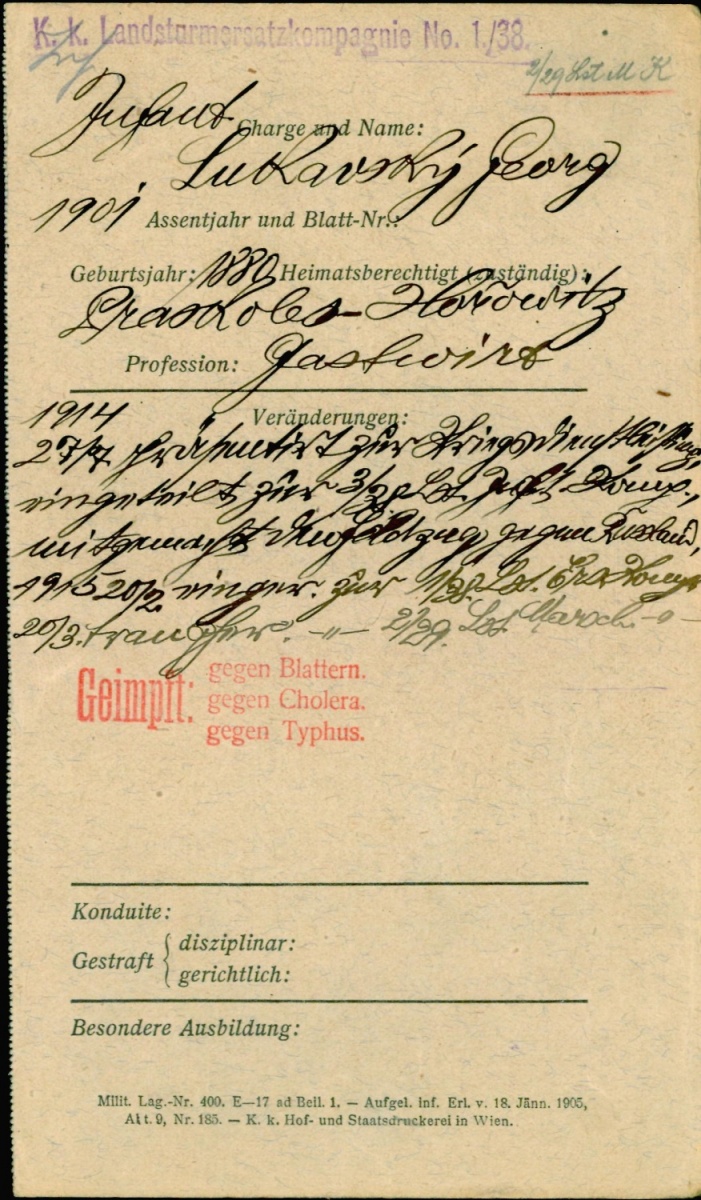 K. k. Landsturmersatzkompagnie No. 1./38.
2/29 Lst M K
Infant.
Charge und Name:
Lukavský Georg
1901 Assentjahr und Blatt-Nr.:
Geburtsjahr: 1880 Heimatsberechtigt (zuständig):
Praskoles - Hořowitz
Profession: Gastwirt
1914 Veränderungen:
27/7 präsentirt zur Kriegsdienstleistung,
eingeteilt zur Lst. Inft. Komp.,
mitgemacht den Feldzug gegen Russland,
1915 20/2 einger. zur 1/38. Lst. Ers Komp
20/3. transfer. -"- 2/29. Lst Marsch. -"-
Geimpft: gegen Blattern.
gegen Cholera.
gegen Typhus.
Konduite:
Gestraft { disziplinar:
gerichtlich:
Besondere Ausbildung:
Milit. Lag.-Nr. 400. E—17 ad Beil. 1. — Aufgel. inf. Erl. v. 18. Jänn. 1905,
Abt. 9, Nr. 185. — K. k. Hof- und Staatsdruckerei in Wien.